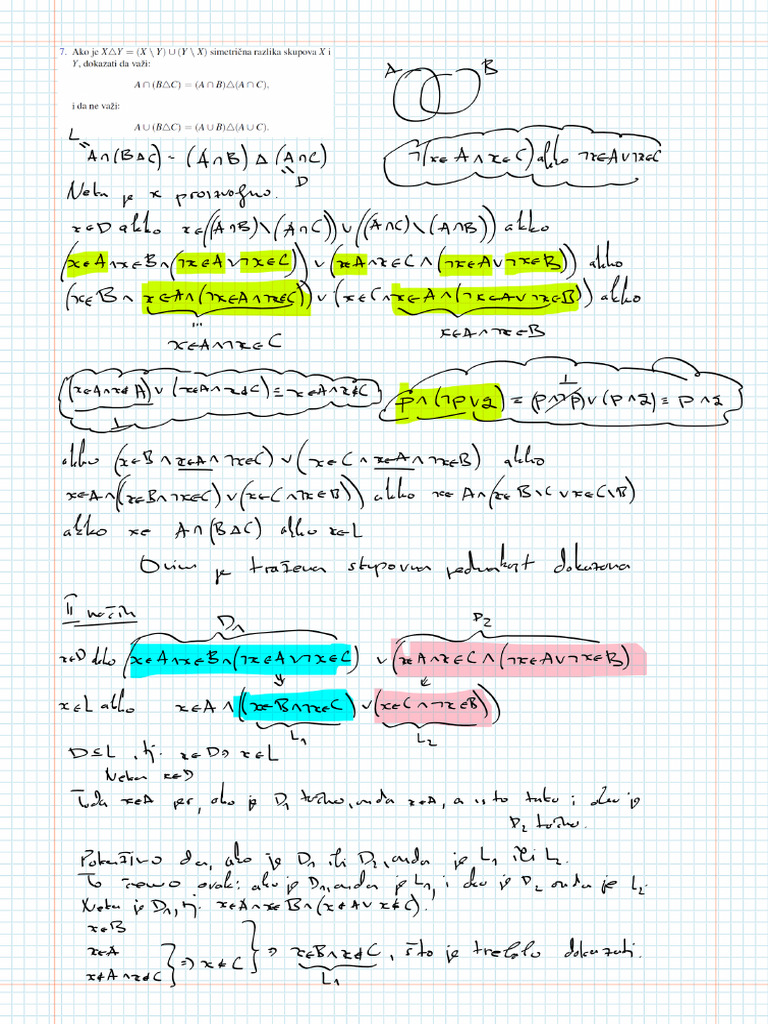 7. Ako je X△Y = (X \ Y) ∪ (Y \ X) simetrična razlika skupova X i
Y, dokazati da važi:
A ∩ (B△C) = (A ∩ B)△(A ∩ C),
i da ne važi:
A ∪ (B△C) = (A ∪ B)△(A ∪ C).
A B
L
A∩(BΔC) = (A∩B) Δ (A∩C)
D
¬(x∈A ∧ x∈C) akko ¬x∈A ∨ ¬x∈C
Neka je x proizvoljno.
x∈D akko x∈((A∩B)\(A∩C)) ∪ ((A∩C)\(A∩B)) akko
(x∈A ∧ x∈B ∧ (¬x∈A ∨ ¬x∈C)) ∨ (x∈A ∧ x∈C ∧ (¬x∈A ∨ ¬x∈B)) akko
(x∈B ∧ x∈A ∧ (¬x∈A ∧ ¬x∈C)) ∨ (x∈C ∧ x∈A ∧ (¬x∈A ∨ ¬x∈B)) akko
x∈A ∧ ¬x∈C x∈A ∧ ¬x∈B
(x∈A ∧ x∉A) ∨ (x∈A ∧ x∉C) ≡ x∈A ∧ x∉C
⊥
p ∧ (¬p ∨ q) ≡ (p ∧ ¬p) ∨ (p ∧ q) ≡ p ∧ q
⊥
akko (x∈B ∧ x∈A ∧ ¬x∈C) ∨ (x∈C ∧ x∈A ∧ ¬x∈B) akko
x∈A ∧ ((x∈B ∧ ¬x∈C) ∨ (x∈C ∧ ¬x∈B)) akko x∈A ∧ (x∈B\C ∨ x∈C\B)
akko x∈ A∩(BΔC) akko x∈L
Ovim je tražena skupovna jednakost dokazana
II način
D₁ D₂
x∈D akko (x∈A ∧ x∈B ∧ (¬x∈A ∨ ¬x∈C) ∨ (x∈A ∧ x∈C ∧ (¬x∈A ∨ ¬x∈B)
x∈L akko x∈A ∧ ((x∈B ∧ ¬x∈C) ∨ (x∈C ∧ ¬x∈B))
L₁ L₂
D⊆L, tj. x∈D ⇒ x∈L
Neka x∈D
Tada x∈A jer, ako je D₁ tačno, onda x∈A, a isto tako i ako je
D₂ tačno.
Pokažimo da, ako je D₁ ili D₂, onda je L₁ ili L₂.
To ćemo ovako: ako je D₁, onda je L₁, i ako je D₂ onda je L₂.
Neka je D₁, tj. x∈A ∧ x∈B ∧ (x∉A ∨ x∉C).
x∈B
x∈A
x∉A ∧ x∉C } ⇒ x∉C } ⇒ x∈B ∧ x∉C, što je trebalo dokazati.
L₁